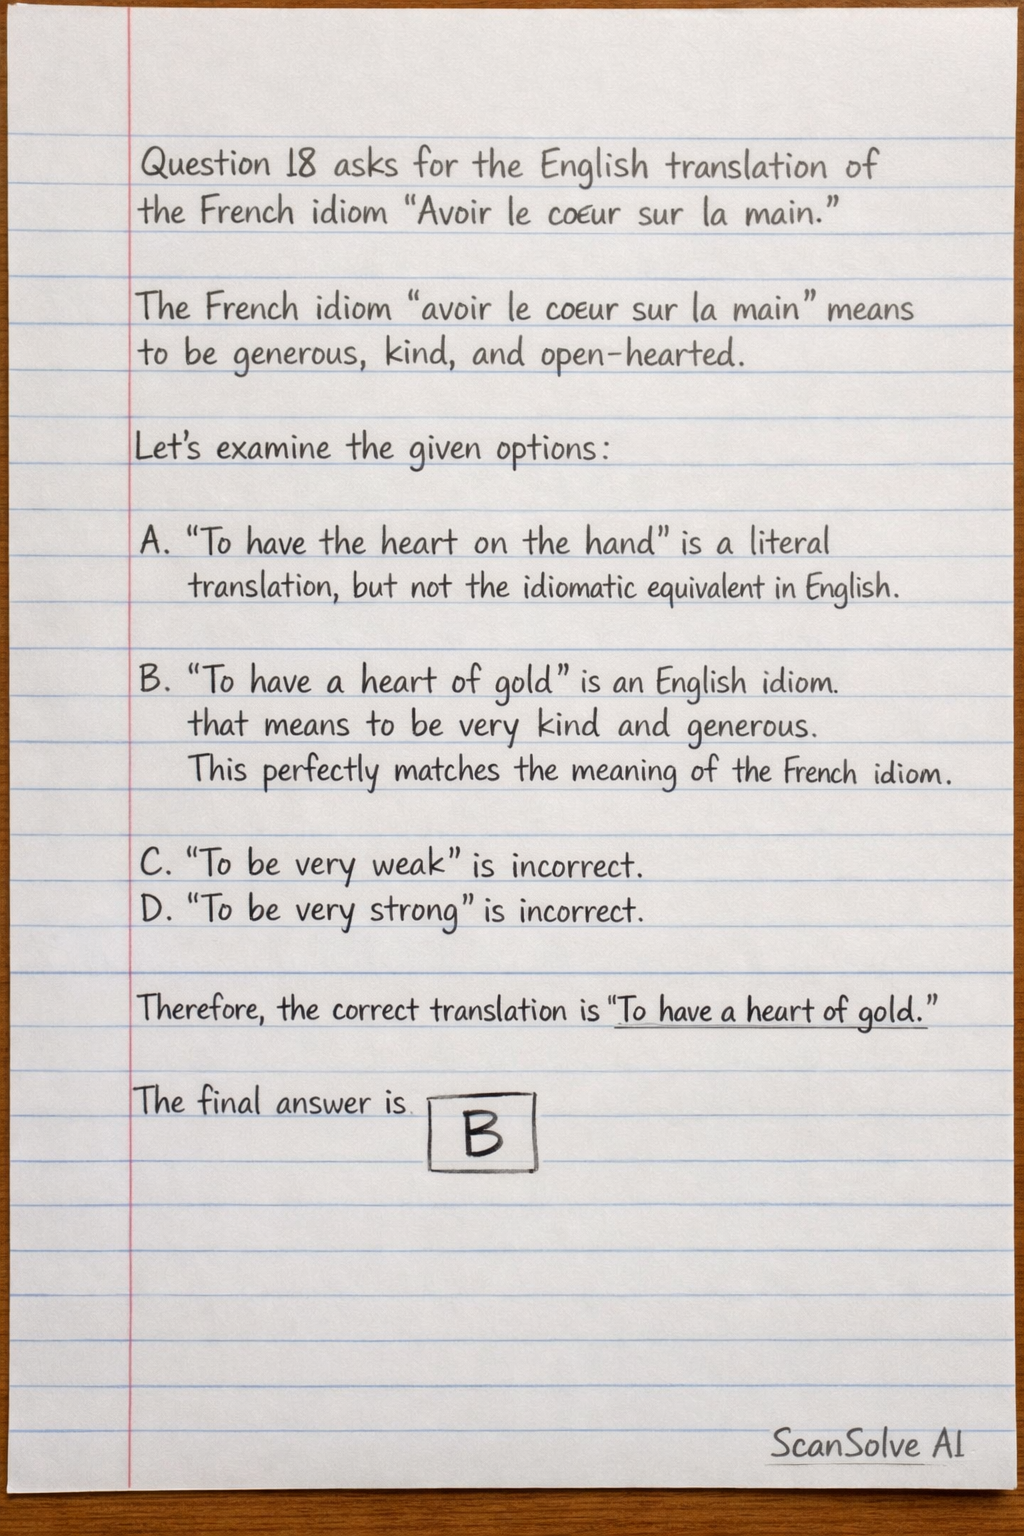 Question 18 asks for the English translation of
the French idiom “Avoir le coeur sur la main.”
The French idiom “avoir le coeur sur la main” means
to be generous, kind, and open-hearted.
Let's examine the given options:
A. “To have the heart on the hand” is a literal
translation, but not the idiomatic equivalent in English.
B. “To have a heart of gold” is an English idiom.
that means to be very kind and generous.
This perfectly matches the meaning of the French idiom.
C. “To be very weak” is incorrect.
D. “To be very strong” is incorrect.
Therefore, the correct translation is “To have a heart of gold.”
The final answer is B
ScanSolve AI